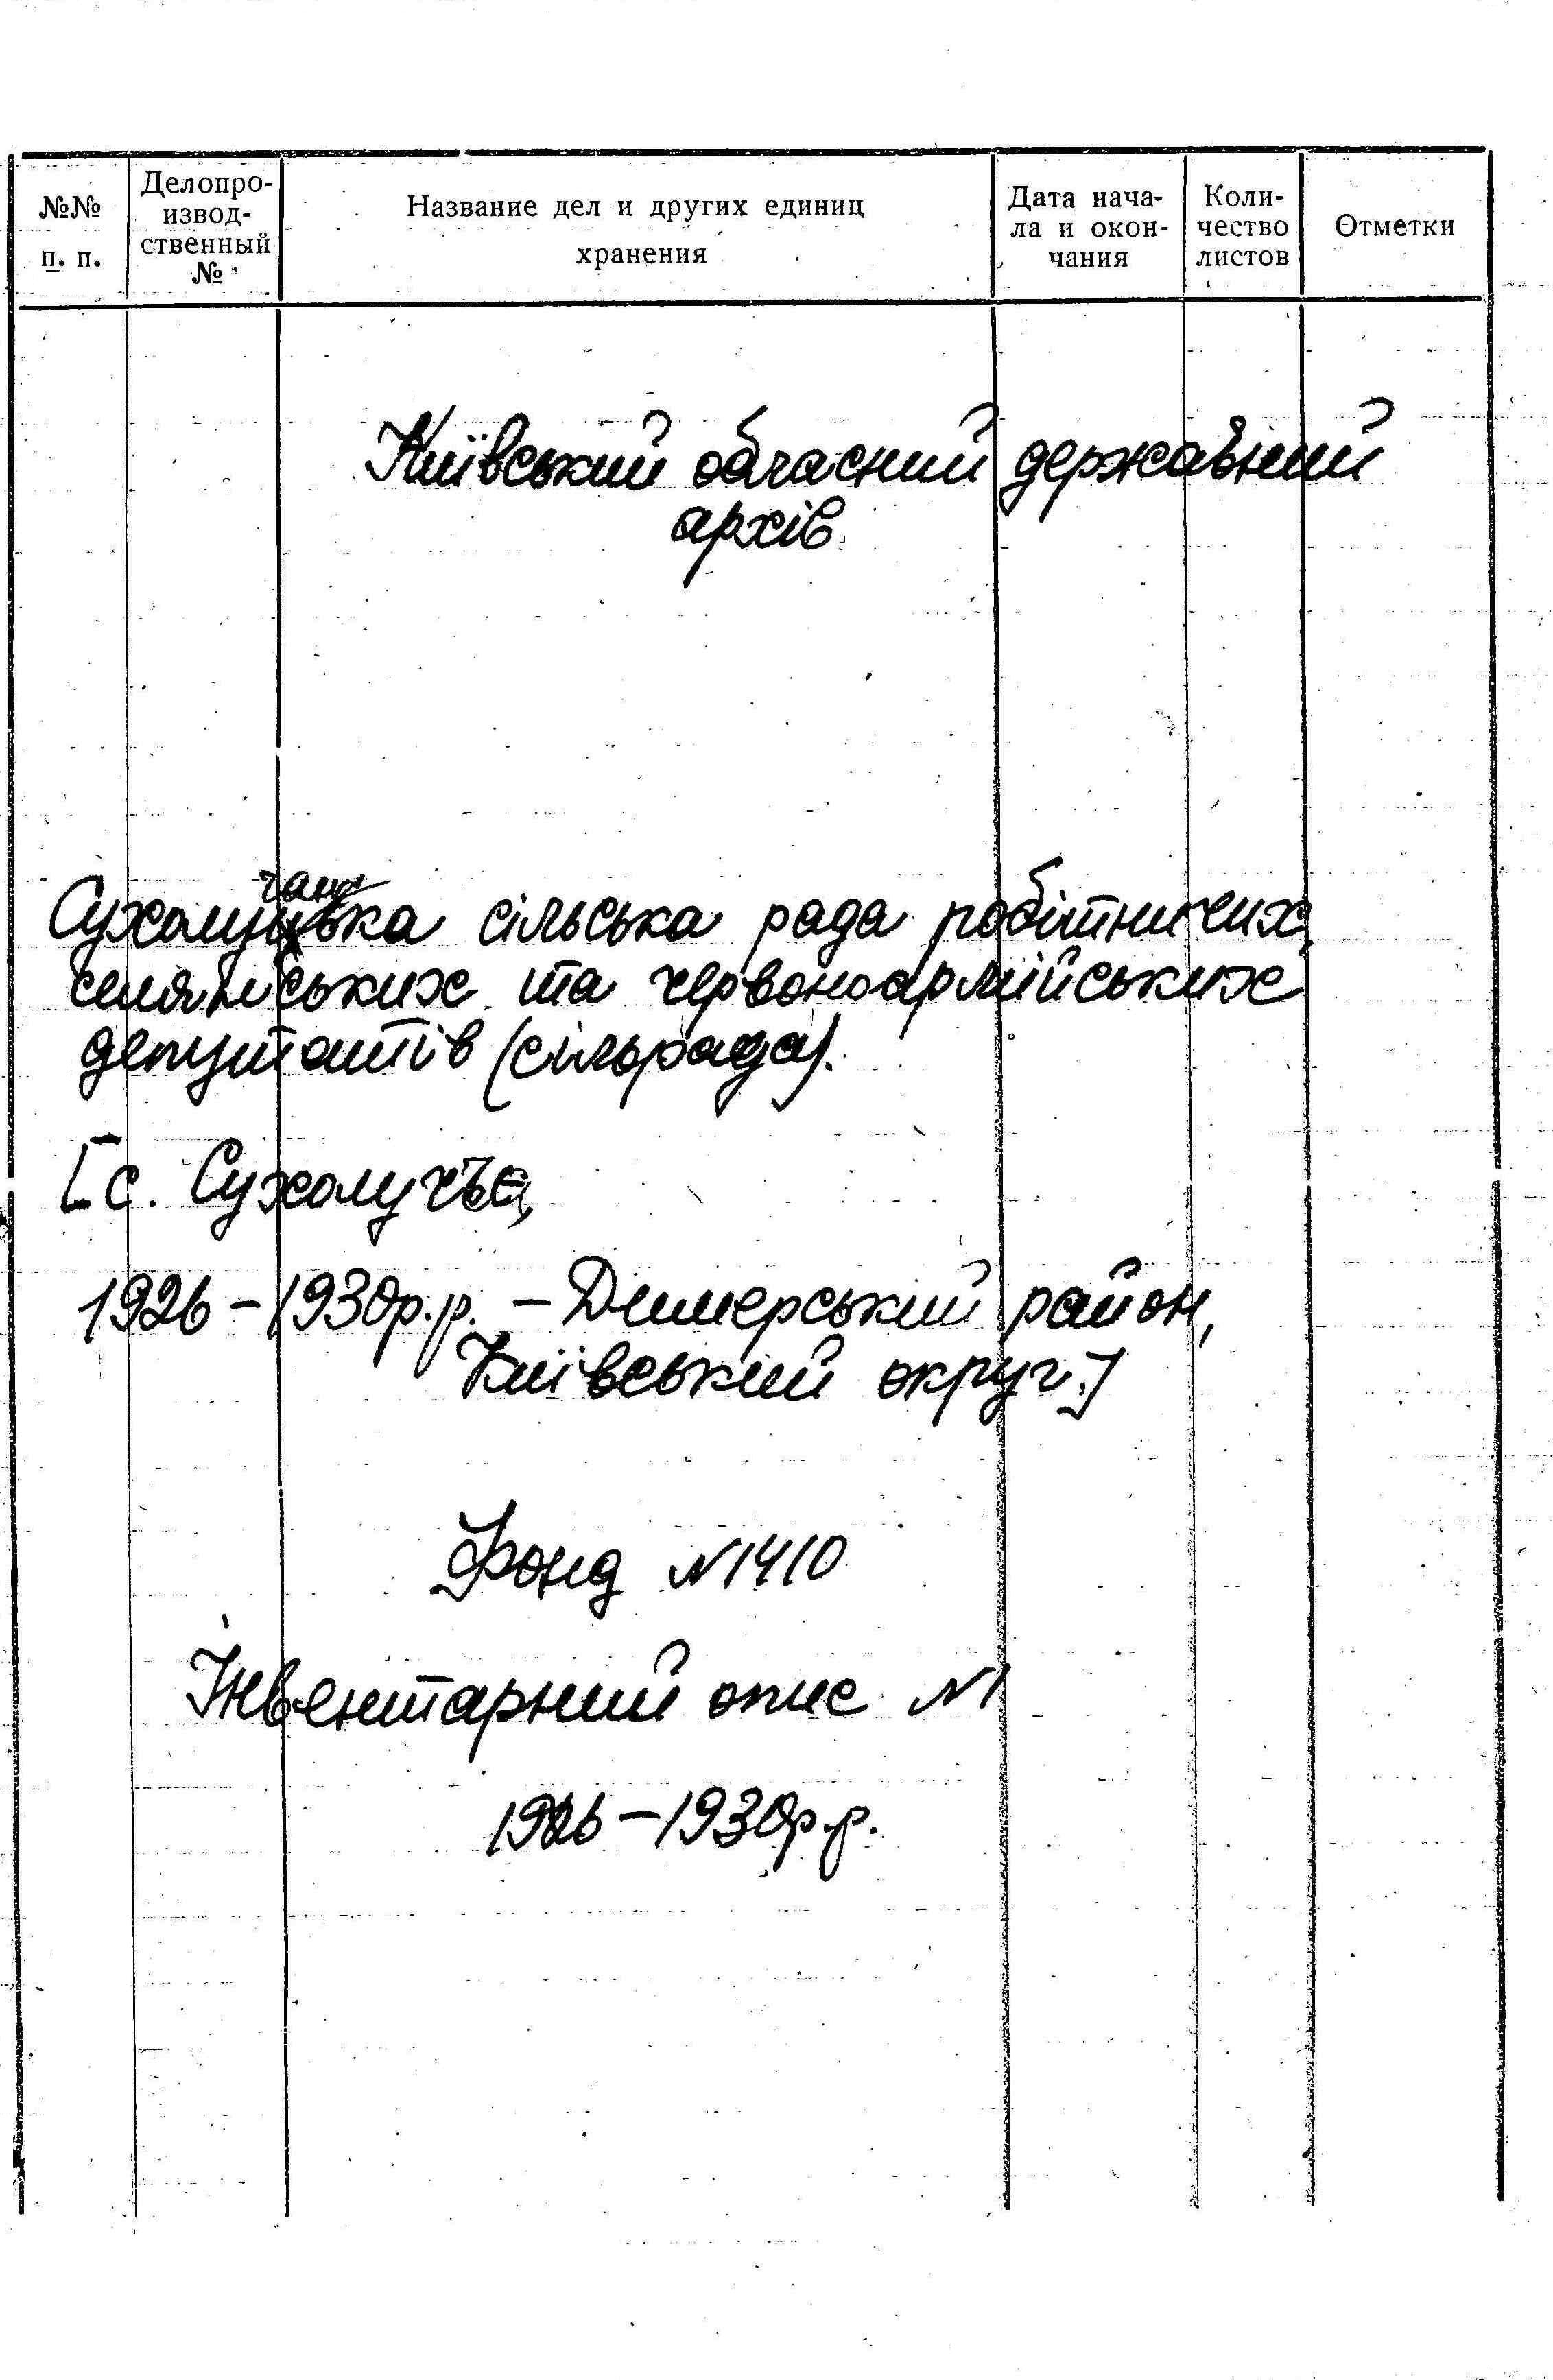 №№ п. п.
Делопро-
извод-
ственный
№
Название дел и других единиц
хранения
Дата нача-
ла и окон-
чания
Коли-
чество
листов
Отметки
Київський обласний державний
архів.
сільська рада робітничих,
селянських та червоноармійських
депутатів (сільрада).
[с. Сухолуччя,
1926-1930р.р. - Димерський район,
Київський округ.]
Фонд N1410
Інвентарний опис N1
1926-1930р.р.